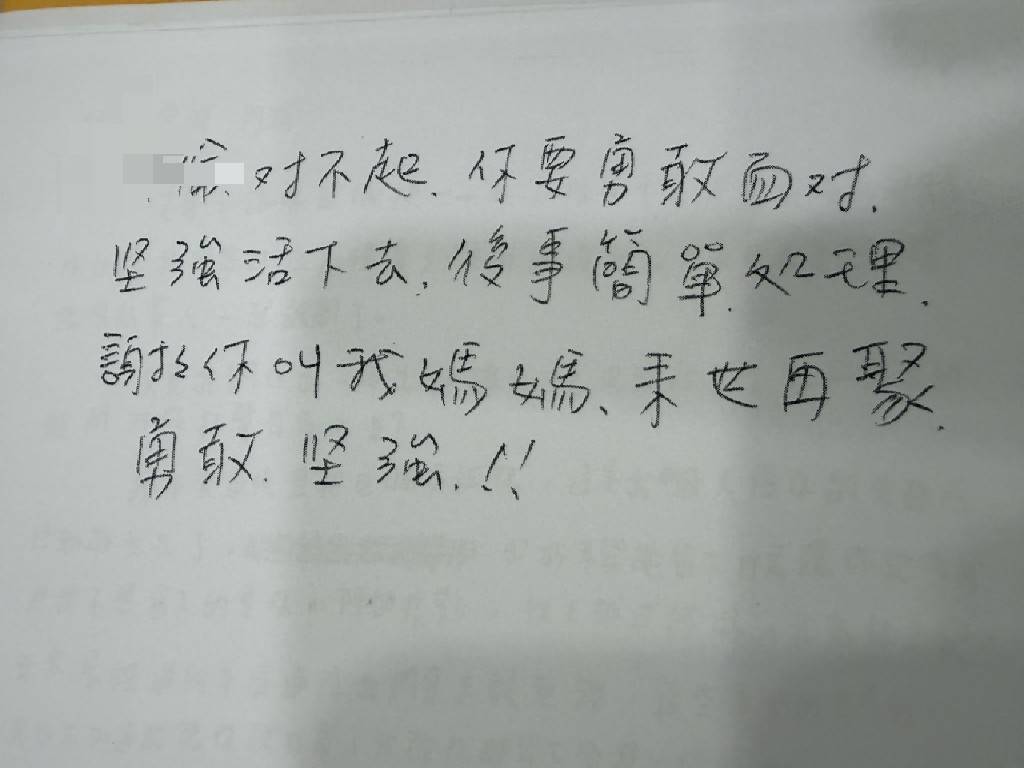 对不起.你要勇敢面对.
坚強活下去.後事簡單.处理.
謝於你叫我媽媽、来世再聚.
勇敢.坚強.!!